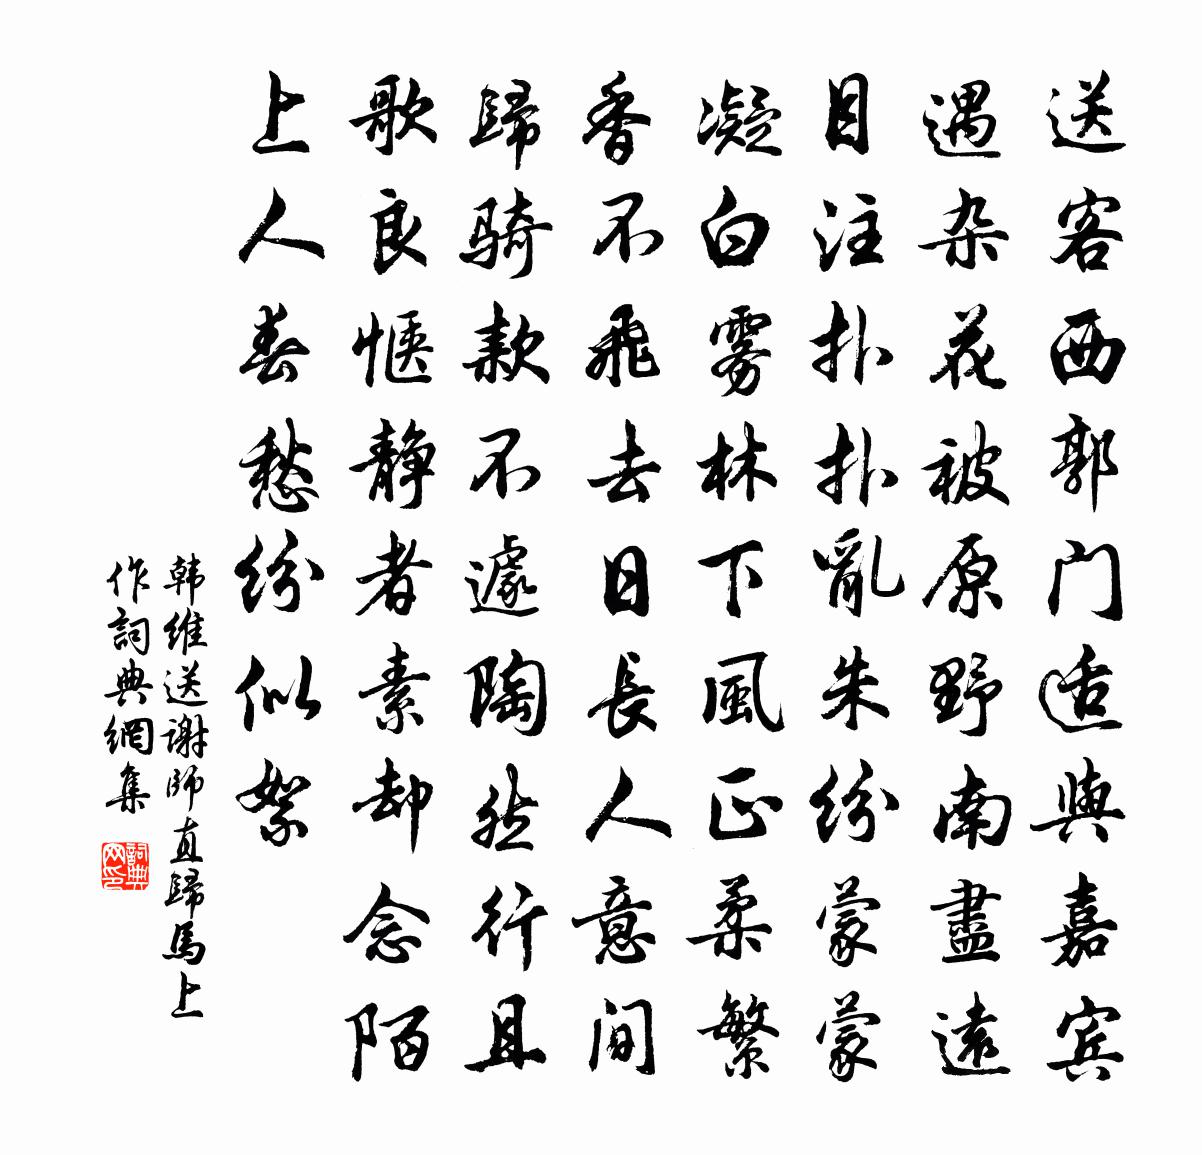 送客西郭门适與嘉宾
遇杂花被原野南盡遠
目注扑扑亂朱纷蒙蒙
凝白雾林下風正柔繁
香不飛去日長人意间
歸骑款不遽陶然行且
歌良惬静者素却念陌
上人春愁纷似絮
韩维送謝師直歸馬上
作詞典網集
詞典网印